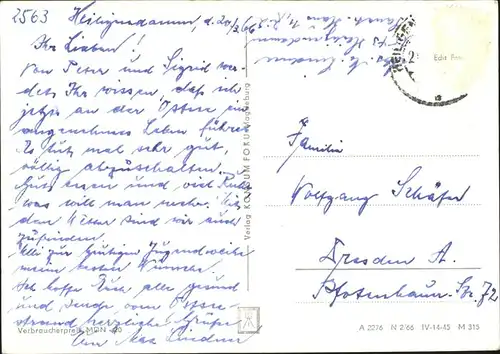 2563
Heiligendamm, d. 20/3.66
Ihr Lieben!
Von Peter und Sigrid wer-
det Ihr wissen, daß ich
jetzt an der Ostsee ein
angenehmes Leben führe.
Es tut mal sehr gut,
völlig abzuschalten.
Gut essen und viel Ruhe
was will man mehr. Mit
dem Wetter sind wir auch
zufrieden.
Uli zur heutigen Jugendweihe
meine besten Wünsche.
Ich hoffe Euch alle gesund
und sende vom Ostsee-
strand herzliche Grüße
Verbraucherpreis MDN
Verlag KONSUM FORUM Magdeburg
HEILIGEN
Edit
Familie
Wolfgang Schäfer
Dresden A.
Pfotenhauer-Str. 72
A 2276 N 2/66 IV-14-45 M 315